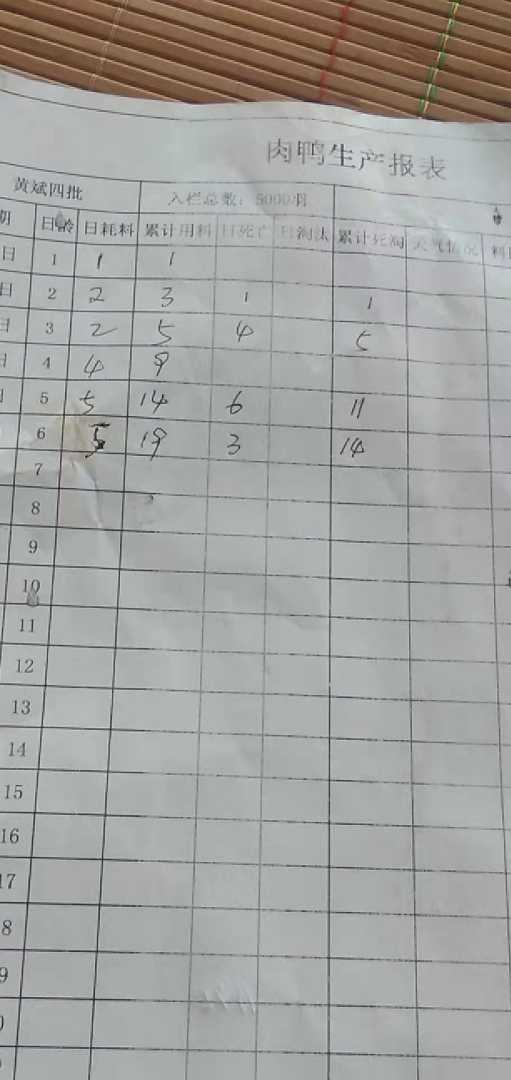 肉鸭生产报表
黄斌四批 入栏总数：5000只
期 日龄 日耗料 累计用料 日死亡 日淘汰 累计死淘 天气情况 料
日 1 1 1
日 2 2 3 1 1
日 3 2 5 4 5
日 4 4 9
日 5 5 14 6 11
6 5 19 3 14
7
8
9
10
11
12
13
14
15
16
17
8
9